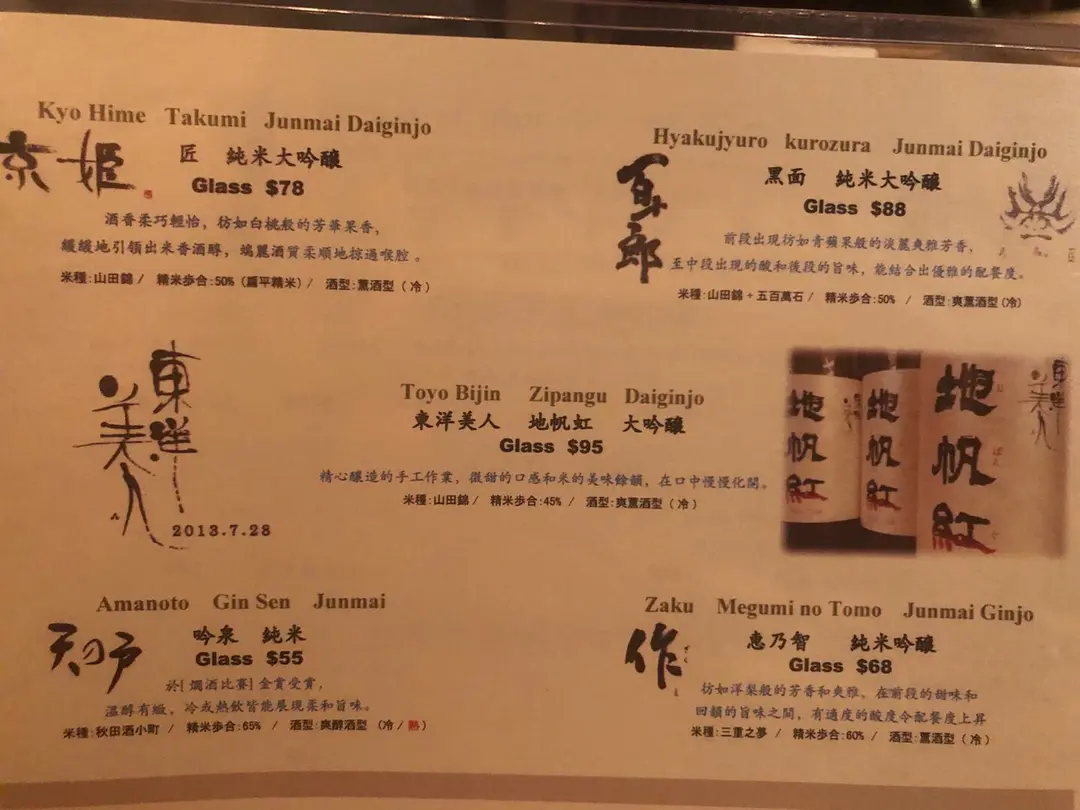 Kyo Hime Takumi Junmai Daiginjo
京姫
匠 純米大吟醸
Glass $78
酒香柔巧輕怡，彷如白桃般的芳華果香，
緩緩地引領出米香酒醇，端麗酒質柔順地掠過喉腔。
米種：山田錦 / 精米步合：50%（扁平精米）/ 酒型：薰酒型（冷）
Hyakujyuro kurozura Junmai Daiginjo
百十郎
黑面 純米大吟醸
Glass $88
前段出現彷如青蘋果般的淡麗爽雅芳香，
至中段出現的酸和後段的旨味，能結合出優雅的配餐度。
米種：山田錦＋五百萬石 / 精米步合：50% / 酒型：爽薰酒型（冷）
東洋美人
2013.7.28
Toyo Bijin Zipangu Daiginjo
東洋美人 地帆虹 大吟醸
Glass $95
精心釀造的手工作業，微甜的口感和米的美味餘韻，在口中慢慢化開。
米種：山田錦 / 精米步合：45% / 酒型：爽薰酒型（冷）
地帆紅
地帆紅
地帆紅
Amanoto Gin Sen Junmai
天の戸
吟泉 純米
Glass $55
於[燗酒比賽]金賞受賞，
溫醇有緻，冷或熱飲皆能展現柔和旨味。
米種：秋田酒小町 / 精米步合：65% / 酒型：爽醇酒型（冷/熱）
Zaku Megumi no Tomo Junmai Ginjo
作
ざく
惠乃智 純米吟醸
Glass $68
彷如洋梨般的芳香和爽雅，在前段的甜味和
回韻的旨味之間，有適度的酸度令配餐度上昇
米種：三重之夢 / 精米步合：60% / 酒型：薰酒型（冷）